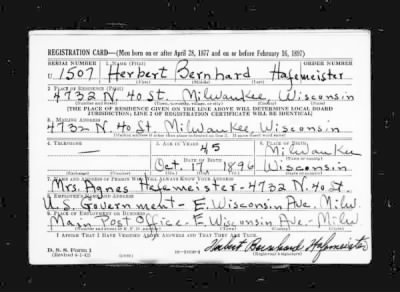 REGISTRATION CARD—(Men born on or after April 28, 1877 and on or before February 16, 1897)
SERIAL NUMBER 1. NAME (Print) ORDER NUMBER
U 1507 Herbert Bernhard Hafemeister
(First) (Middle) (Last)
2. PLACE OF RESIDENCE (Print)
4732 N. 40 St. Milwaukee, Wisconsin
(Number and street) (Town, township, village, or city) (County) (State)
[THE PLACE OF RESIDENCE GIVEN ON THE LINE ABOVE WILL DETERMINE LOCAL BOARD
JURISDICTION; LINE 2 OF REGISTRATION CERTIFICATE WILL BE IDENTICAL]
3. MAILING ADDRESS
4732 N. 40 St. Milwaukee, Wisconsin
[Mailing address if other than place indicated on line 2. If same insert word same]
4. TELEPHONE 5. AGE IN YEARS 6. PLACE OF BIRTH
— 45 Milwaukee
DATE OF BIRTH (Town or county)
Oct. 17 1896 Wisconsin
7. NAME AND ADDRESS OF PERSON WHO WILL ALWAYS KNOW YOUR ADDRESS
Mrs. Agnes Hafemeister-4732 N. 40 St.
8. EMPLOYER'S NAME AND ADDRESS
U.S. Government - E. Wisconsin Ave. Milw.
9. PLACE OF EMPLOYMENT OR BUSINESS
Main Post Office - E. Wisconsin Ave. Milw
I AFFIRM THAT I HAVE VERIFIED ABOVE ANSWERS AND THAT THEY ARE TRUE.
D. S. S. Form 1
(Revised 4-1-42) Herbert Bernhard Hafemeister
(Registrant's signature)